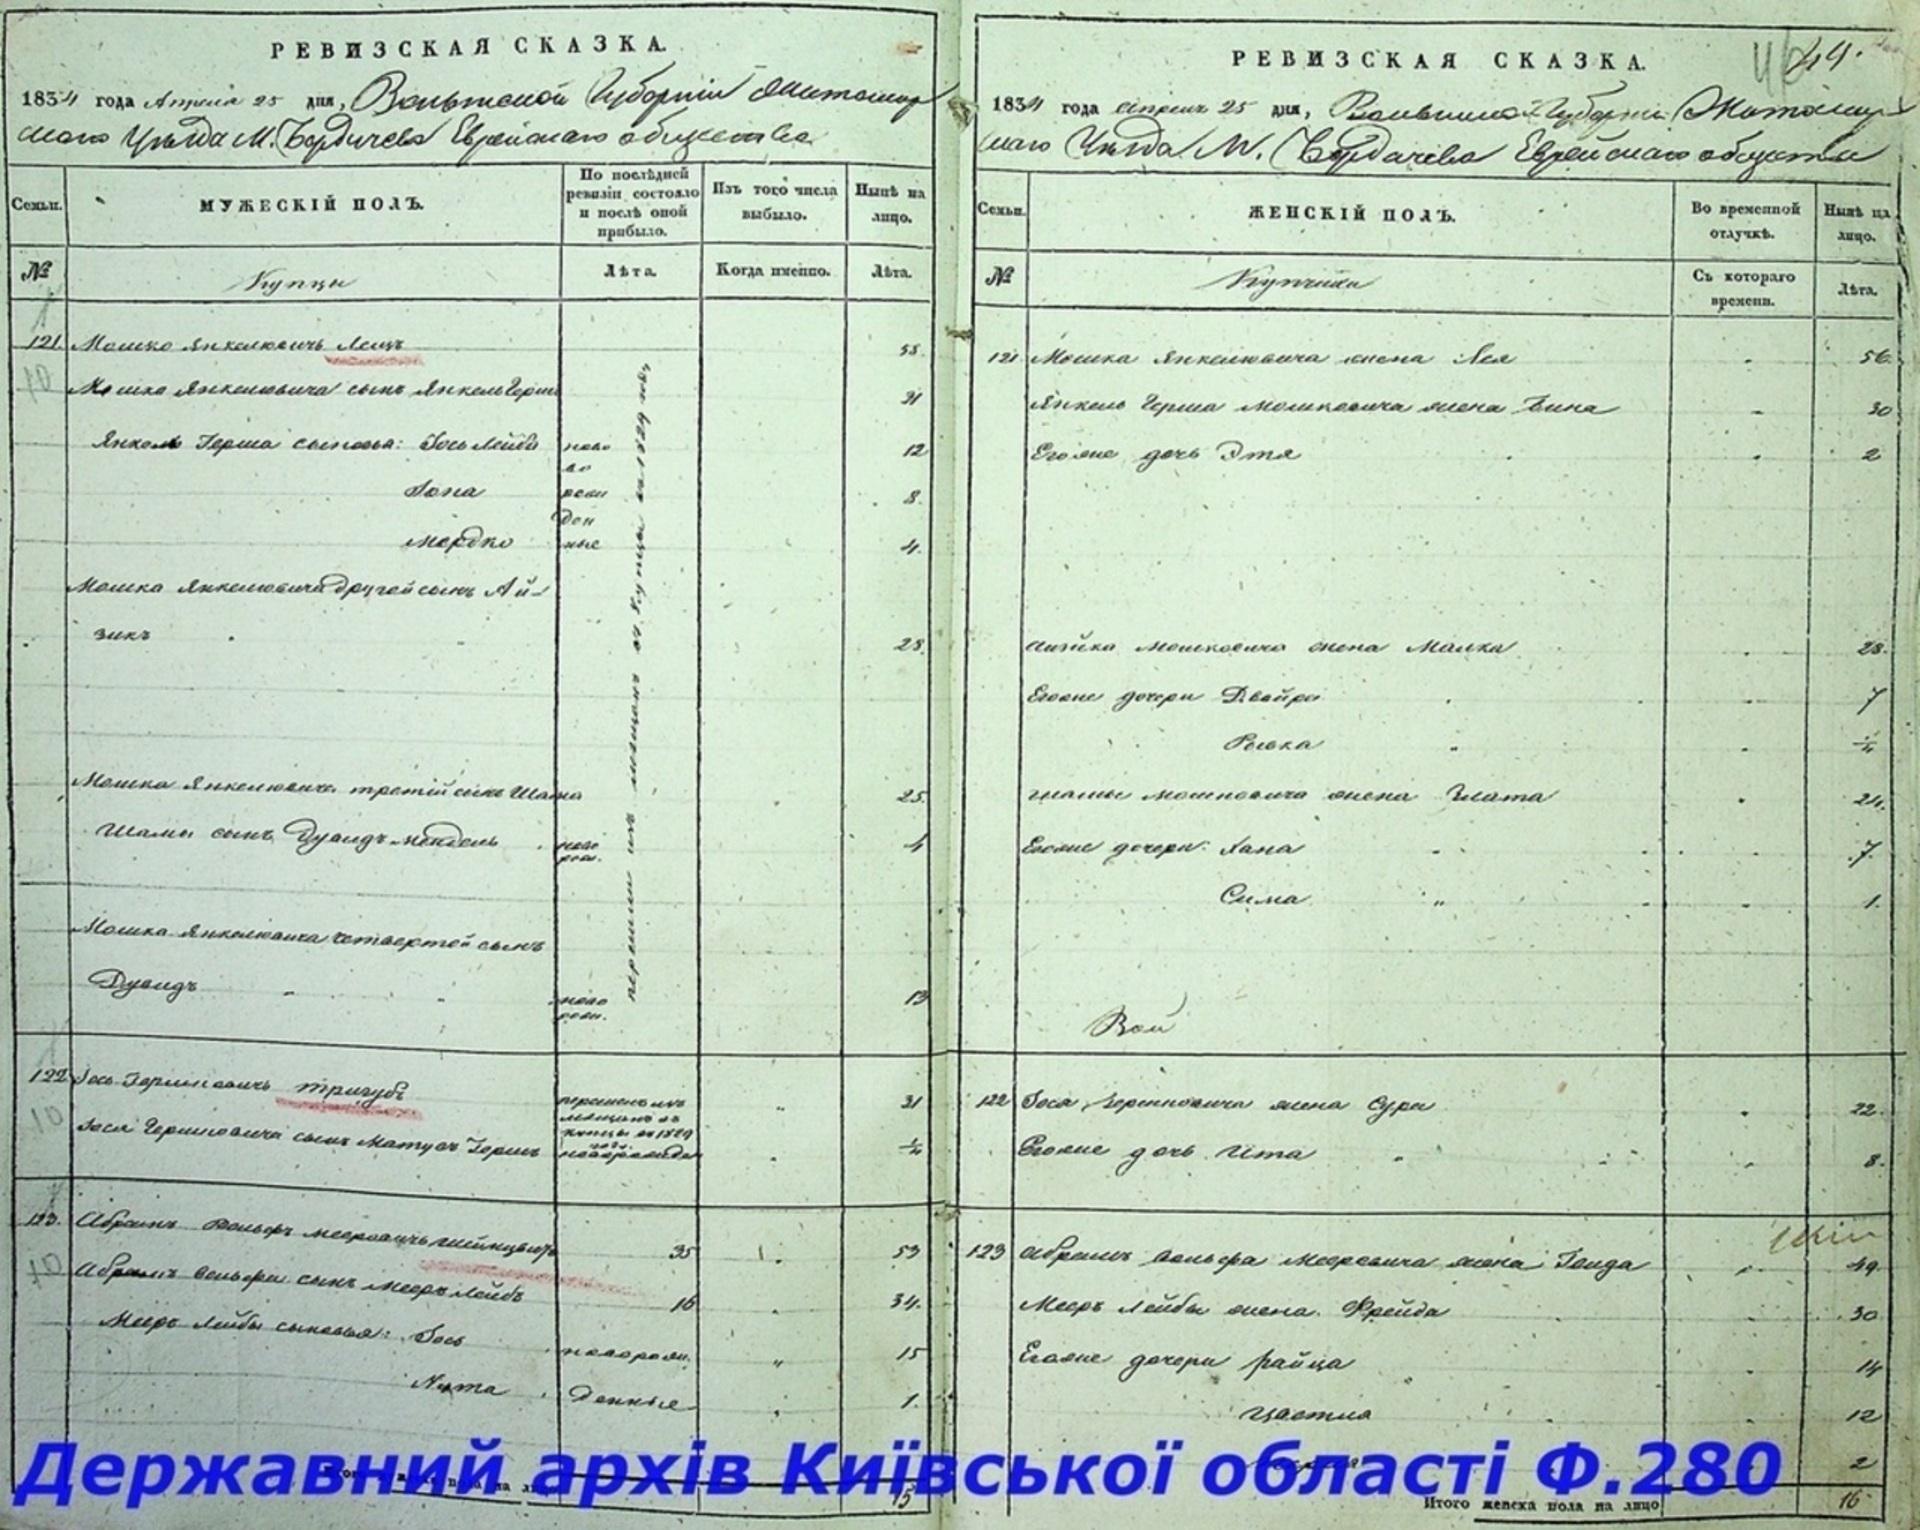 РЕВИЗСКАЯ СКАЗКА.
1834 года Апреля 25 дня, Волынской Губернии Житомир
скаго Уезда М. Бердичева Еврейскаго общества
Семьи.
МУЖЕСКІЙ ПОЛЪ.
По послѣдней ревизіи состояло и послѣ оной прибыло.
Изъ того числа выбыло.
Нынѣ на лицо.
№
Купцы
Лѣта.
Когда именно.
Лѣта.
121. Мошко Янкелювичъ 58.
Мошка Янкелювича сынъ Янкель Герш 31
Янкель Герша сыновья: Іось Лейба ново 12
во
Іона рож 8.
ден
Мордко ные 4.
Мошка Янкелювича другой сынъ Ай-
зикъ 28.
Мошка Янкелювича третій сынъ Шама 25.
Шамы сынъ Дувидъ Мендель ново рож. 4
Мошка Янкелювича четвертой сынъ
Дувидъ ново рож. 13
перешли изъ мещанъ въ купцы въ 1829 году
122 Іось Гершковичъ Тригубъ перешелъ изъ мещанъ въ купцы въ 1829 году 31
Іося Гершковича сынъ Матусъ Герш новорожден 1/4
123. Абрамъ Вольфъ Мееровичъ 35 53
Абрамъ Вольфа сынъ Мееръ Лейбъ 16 34.
Мееръ Лейбы сыновья: Іось новорож 15
Нута денные 1.
15
РЕВИЗСКАЯ СКАЗКА.
44.
1834 года апреля 25 дня, Волынской Губерніи Житомир
скаго Уезда М. Бердичева Еврейскаго общества
Семьи.
ЖЕНСКІЙ ПОЛЪ.
Во временной отлучкѣ.
Нынѣ на лицо.
№
Купчихи
Съ котораго времени.
Лѣта.
121 Мошка Янкелювича жена Лея 56
Янкель Герша Мошковича жена 30
Егоже дочь Этя 2
Айзика Мошковича жена Малка 28.
Егоже дочери Двойра 7
Рывка 1/4
Шамы Мошковича жена Злата 24.
Егоже дочери: Хана 7.
Сима 1.
122 Іося Гершковича жена Сура 22.
Егоже дочь Ита 8.
123 Абрамъ Вольфа Мееровича жена 49.
Мееръ Лейбы жена Фрейда 30
Егоже дочери Райца 14
12
2
Итого женска пола на лицо 16
Державний архів Київської області Ф.280